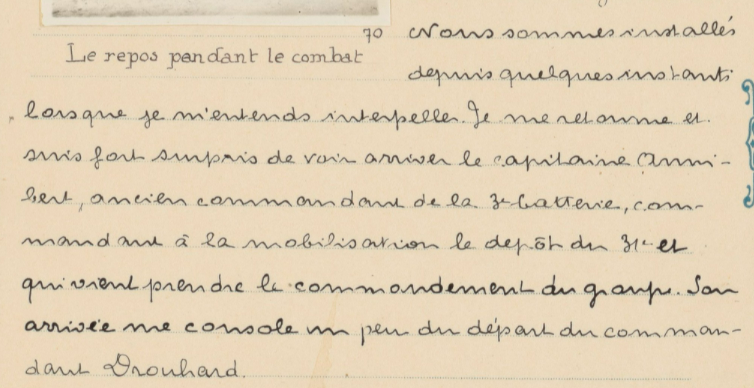 70
Le repos pendant le combat
Nous sommes installés
depuis quelques instants
lorsque je m'entends interpeller. Je me retourne et
suis fort surpris de voir arriver le capitaine Anni-
bert, ancien commandant de la 3e batterie, com-
mandant à la mobilisation le depôt du 31e et
qui vient prendre le commandement du groupe. Son
arrivée me console un peu du départ du comman-
dant Drouhard.